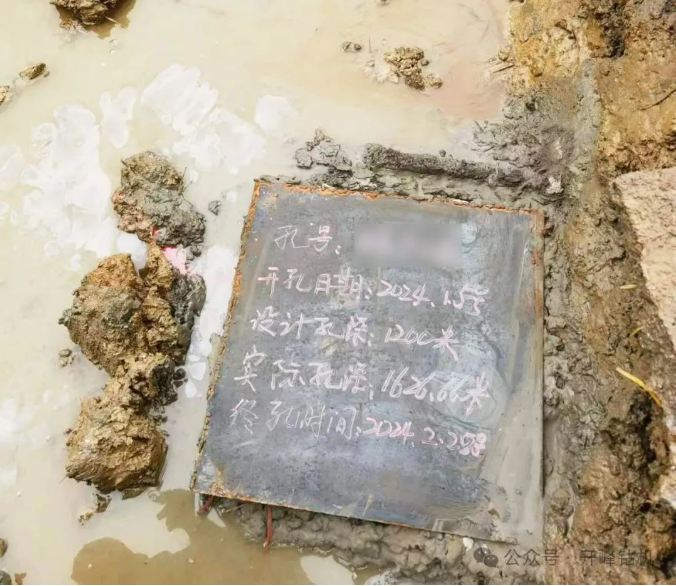 孔号:
开孔日期:2024.1.5号
设计孔深:1200米
实际孔深:1626.66米
终孔时间:2024.2.25号
公众号·开峰钻机